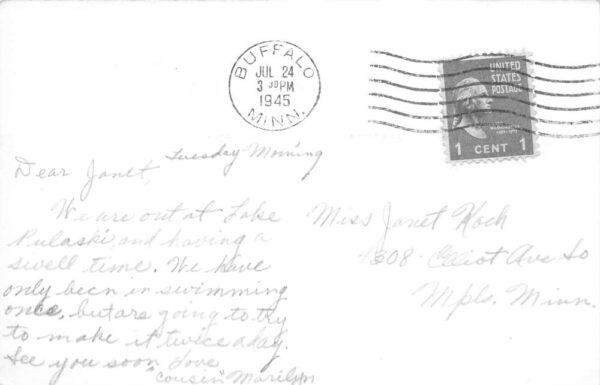 BUFFALO
JUL 24
3 30 PM
1945
MINN.
UNITED
STATES
POSTAGE
WASHINGTON
1 CENT 1
Tuesday Morning
Dear Janet,
We are out at Lake
Pulaski, and having a
swell time. We have
only been in swimming
once, but are going to try
to make it twice a day.
See you soon Love
"cousin" Marilyn
Miss Janet Koch
4308 - Elliot Ave So
Mpls. Minn.